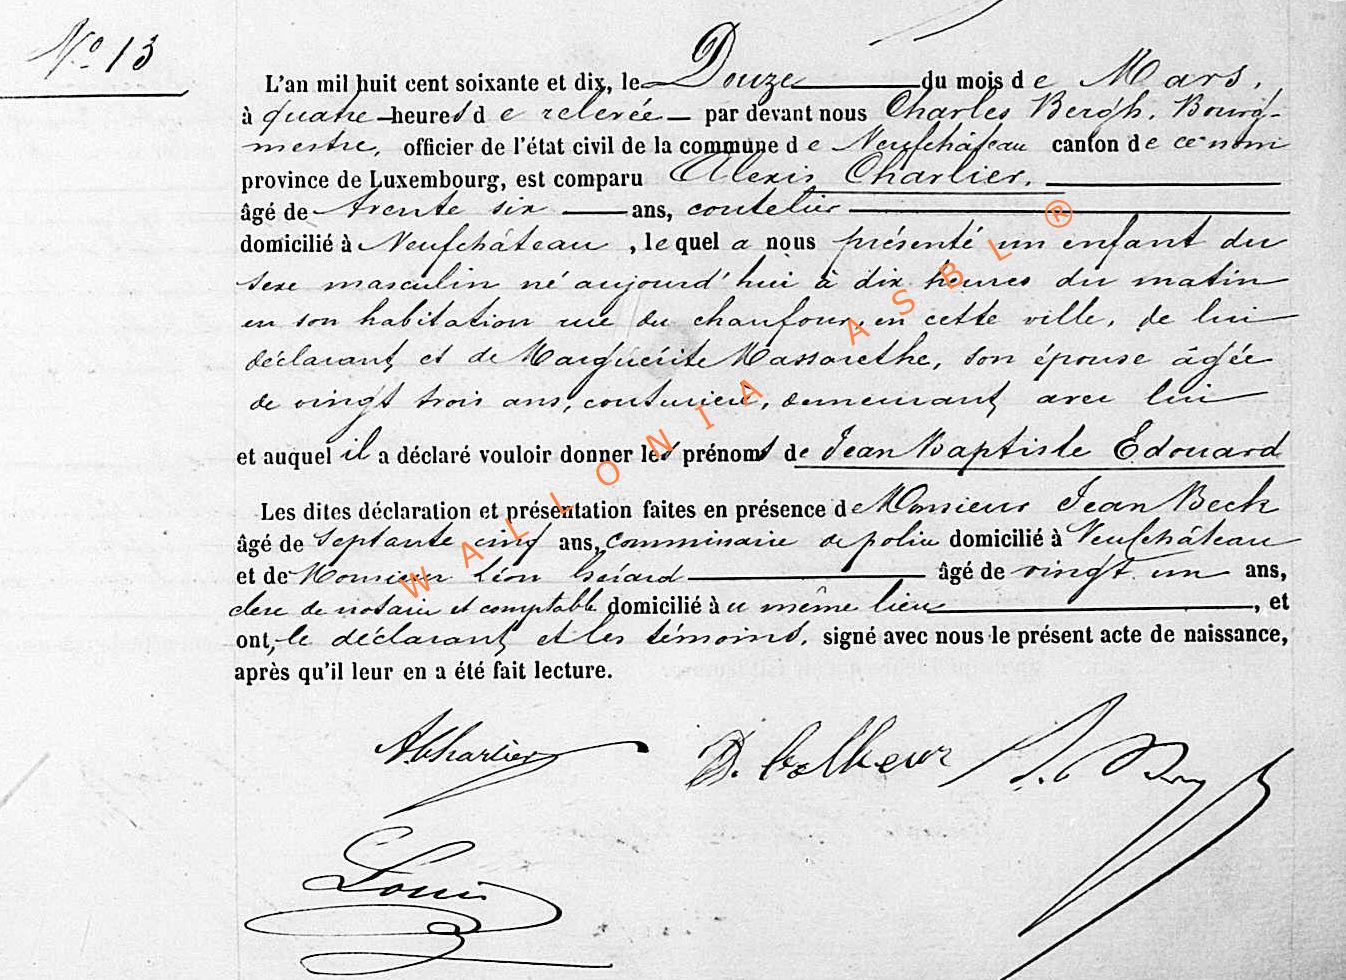 No 13
L'an mil huit cent soixante et dix, le Douze du mois de Mars,
à quatre heures de relevée par devant nous Charles Bergh, Bourg-
mestre, officier de l'état civil de la commune de Neufchâteau canton de ce nom
province de Luxembourg, est comparu Alexis Charlier,
âgé de trente six ans, coutelier
domicilié à Neufchâteau, lequel a nous présenté un enfant du
sexe masculin né aujourd'hui à dix heures du matin
en son habitation rue du chaufour, en cette ville, de lui
déclarant et de Marguerite Massarethe, son épouse âgée
de vingt trois ans, couturière, demeurant avec lui
et auquel il a déclaré vouloir donner les prénoms de Jean Baptiste Edouard
Les dites déclaration et présentation faites en présence de Monsieur Jean Beck
âgé de septante cinq ans, commissaire de police domicilié à Neufchâteau
et de Monsieur Léon Gérard âgé de vingt un ans,
clerc de notaire et comptable domicilié à ce même lieu, et
ont, le déclarant et les témoins, signé avec nous le présent acte de naissance,
après qu'il leur en a été fait lecture.
WALLONIA ASBL ®
A. Charlier
Louis